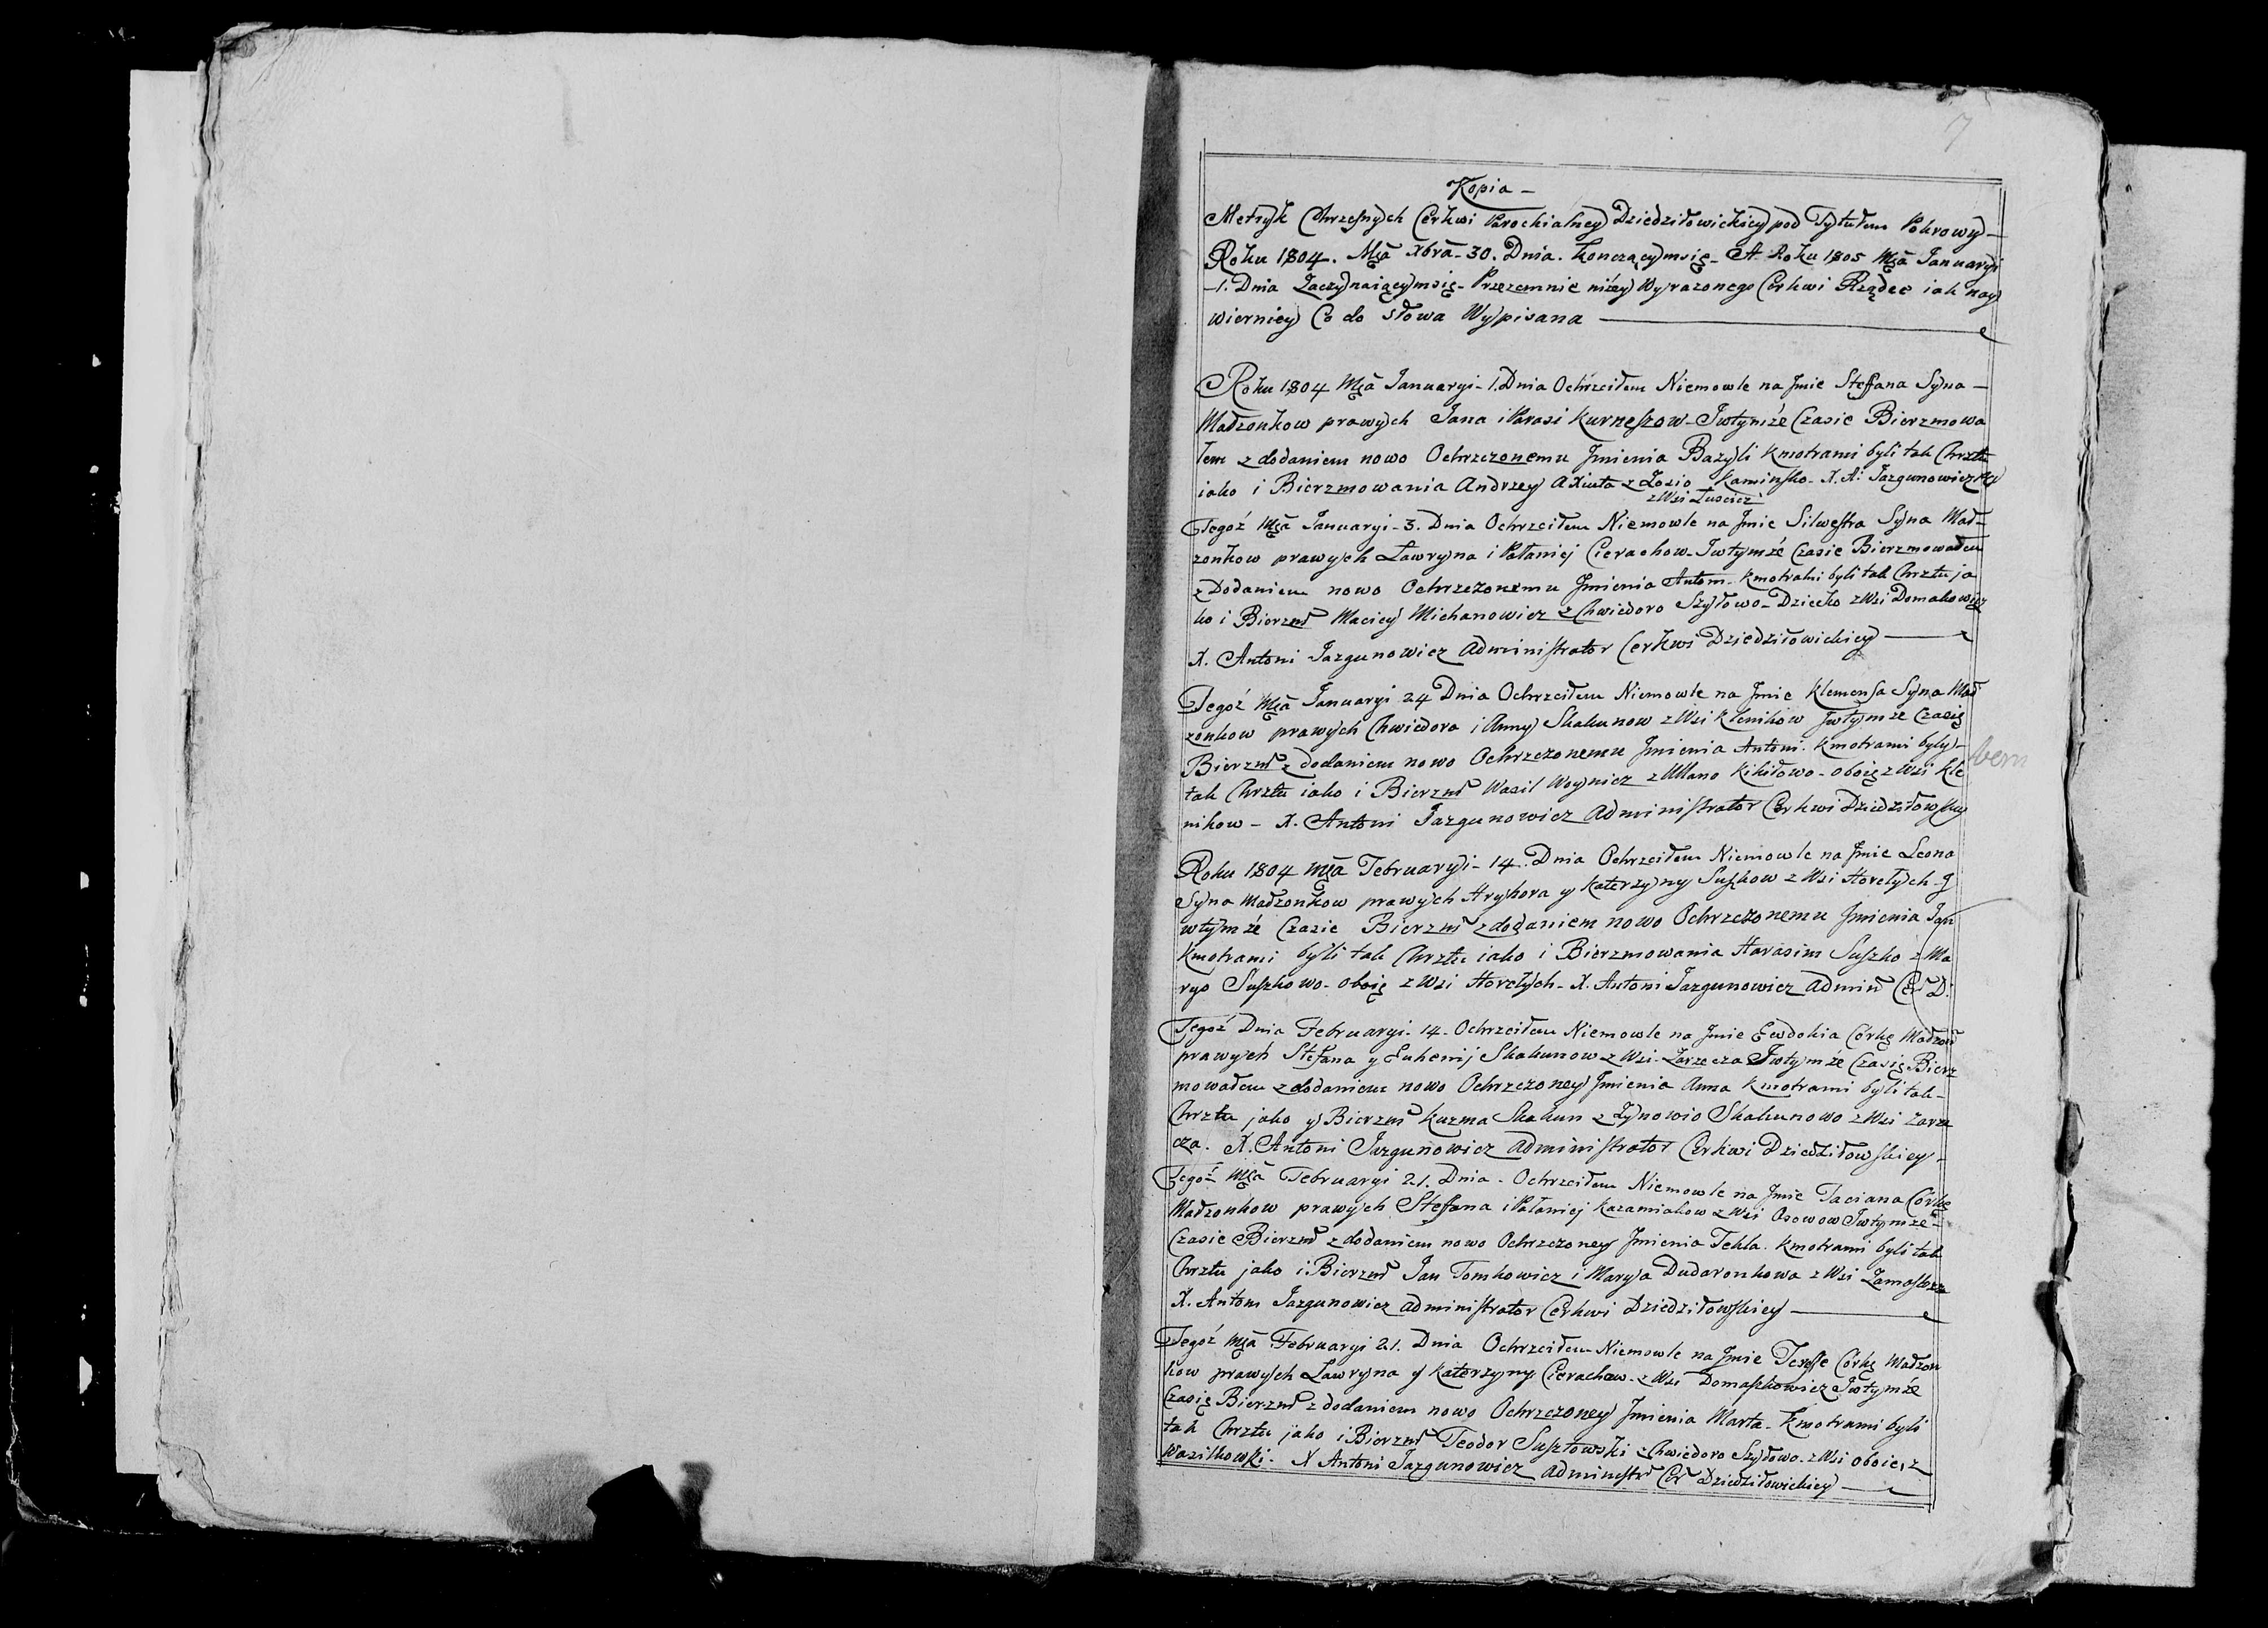 7
Kopia –
Metryk Chrzesnych Cerkwi Parochialney Dziedziłowickiey pod Tytułem Pokrowy –
Roku 1804. Mca Xbra – 30. Dnia. Konczącymsię – A Roku 1805 Mca Januaryi
– 1. Dnia Zaczynaiącymsię – Przezemnie niżey Wyrazonego Cerkwi Rządce iak nay
wierniey Co do słowa Wypisana
Roku 1804 Mca Januaryi – 1. Dnia Ochrzciłem Niemowle na Jmie Steffana Syna –
Małzonkow prawych Jana i Parasi Kurneszow – Jwtymże Czasie Bierzmowa
łem z dodaniem nowo Ochrzczonemu Jmienia Bazyli Kmotrami byli tak Chrztu
iako i Bierzmowania Andrzey Axiuta z Zosio Kaminsko – X. A: Jazgunowicz
z Wsi
Tegoż Mca Januaryi – 3. Dnia Ochrzciłem Niemowle na Jmie Silwestra Syna Mał–
zonkow prawych Ławryna i Pałaniej Cierachow – Jwtymże Czasie Bierzmowałem
z Dodaniem nowo Ochrzczonemu Jmienia Antoni – Kmotrami byli tak Chrztu ja
ko i Bierzm Maciey Michanowicz z Chwiedoro Szyłowo – Dziecko z Wsi Domakowicz
X. Antoni Jazgunowicz Administrator Cerkwi Dziedziłowickiey
Tegoż Mca Januaryi 24 Dnia Ochrzciłem Niemowle na Jmie Klemensa Syna Mał
zonkow prawych Chwiedora i Anny Skakunow z Wsi Klenikow Jwtymże Czasie
Bierzm z dodaniem nowo Ochrzczonemu Jmienia Antoni. Kmotrami byly –
tak Chrztu iako i Bierzm Wasil Woynicz z Ullano Kikiłowo – oboie z Wsi Kle
nikow – X. Antoni Jazgunowicz Administrator Cerkwi Dziedziłowskiey
Roku 1804 Mca Februaryi – 14. Dnia Ochrzciłem Niemowle na Jmie Leona
Syna Małzonkow prawych Hryhora y Katerzyny Suszkow z Wsi Horełych – J
wtymże Czasie Bierzm z dodaniem nowo Ochrzczonemu Jmienia Jan
Kmotrami byli tak Chrztu iako i Bierzmowania Harasim Suszko z Ma
ryo Suszkowo – oboie z Wsi Horełych – X. Antoni Jazgunowicz Admin Cer D.
Tegoż Dnia Februaryi – 14 – Ochrzciłem Niemowle na Jmie Ewdokia Córkę Małzon
prawych Stefana y Euhenij Skakunow z Wsi – Zarzecza Jwtymże Czasie Bierz
mowałem z dodaniem nowo Ochrzczoney Jmienia Anna Kmotrami byli tak –
Chrztu jako y Bierzm Kuzma Skakun z Zynowio Skakunowo z Wsi Zarze
cza. X. Antoni Jazgunowicz Administrator Cerkwi Dziedziłowskiey –
Tegoż Mca Februaryi 21. Dnia – Ochrzciłem Niemowle na Jmie Taciana Córkę
Małzonkow prawych Steffana i Pałaniej Kazamiakow z Wsi Osowow Jwtymże –
Czasie Bierzm z dodaniem nowo Ochrzczoney Jmienia Tekla. Kmotrami byli tak
Chrztu jako i Bierzm Jan Tomkowicz i Marya Dudaronkowa z Wsi Zamoscza
X. Antoni Jazgunowicz Administrator Cerkwi Dziedziłowskiey
Tegoż Mca Februaryi 21. Dnia Ochrzciłem Niemowle na Jmie Teresse Córkę Małzon
kow prawych Ławryna y Katerzyny Cierachow – z Wsi Domaszkowicz Jwtymże
Czasie Bierzm z dodaniem nowo Ochrzczoney Jmienia Marta – Kmotrami byli
tak Chrztu jako i Bierzm Teodor Suszłowski z Chwiedoro Szyłowo – z Wsi oboie, z
Wasilkowki. X Antoni Jazgunowicz Administr Cer Dziedziłowickiey